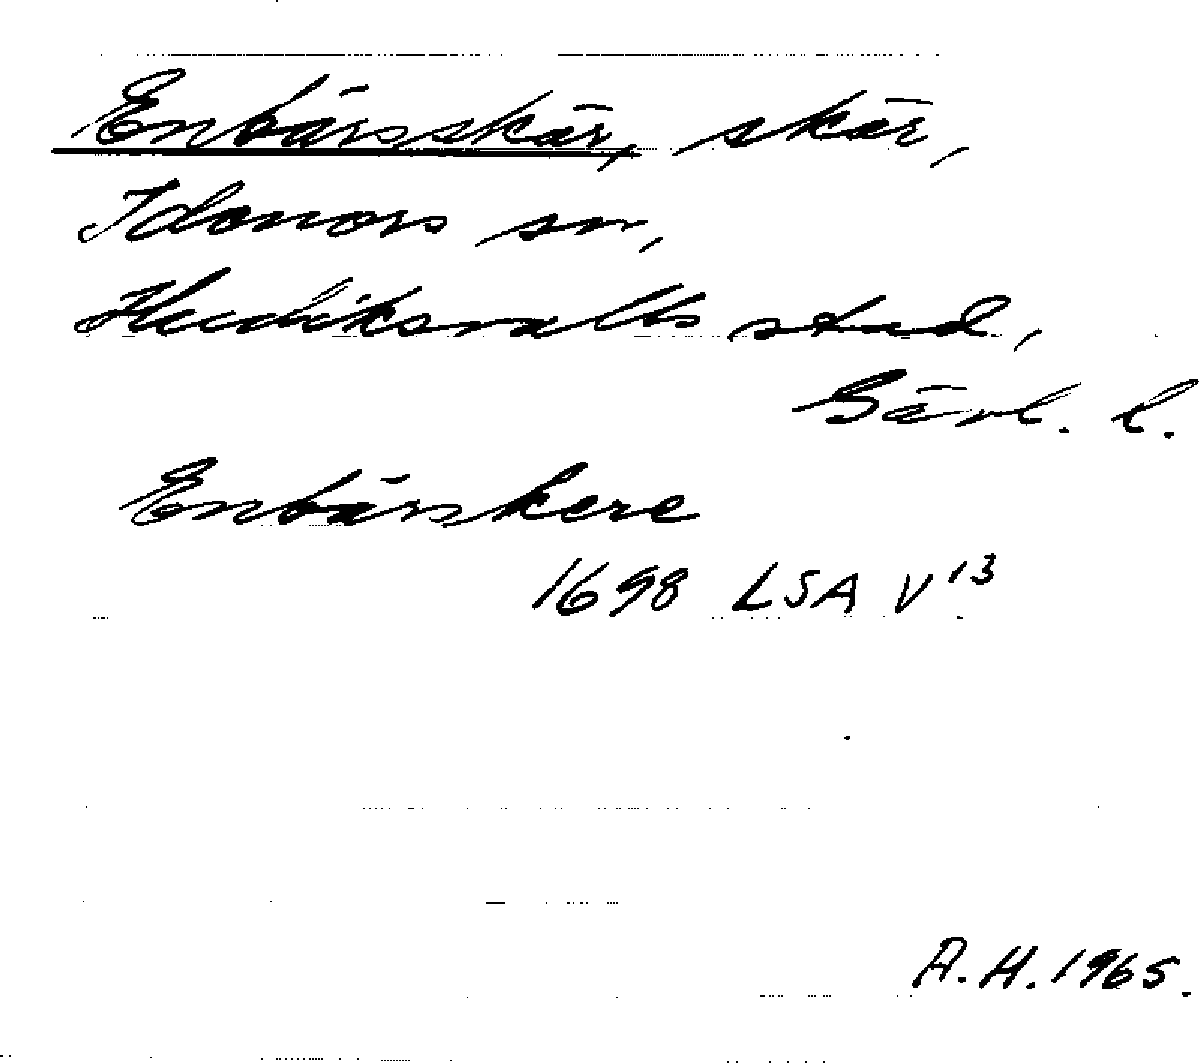 Enbärsskär, skär,
Idenors sn,
Hudiksvalls stad,
Gävl. l.
Enbärskere
1698 LSA V¹³
A.H. 1965.